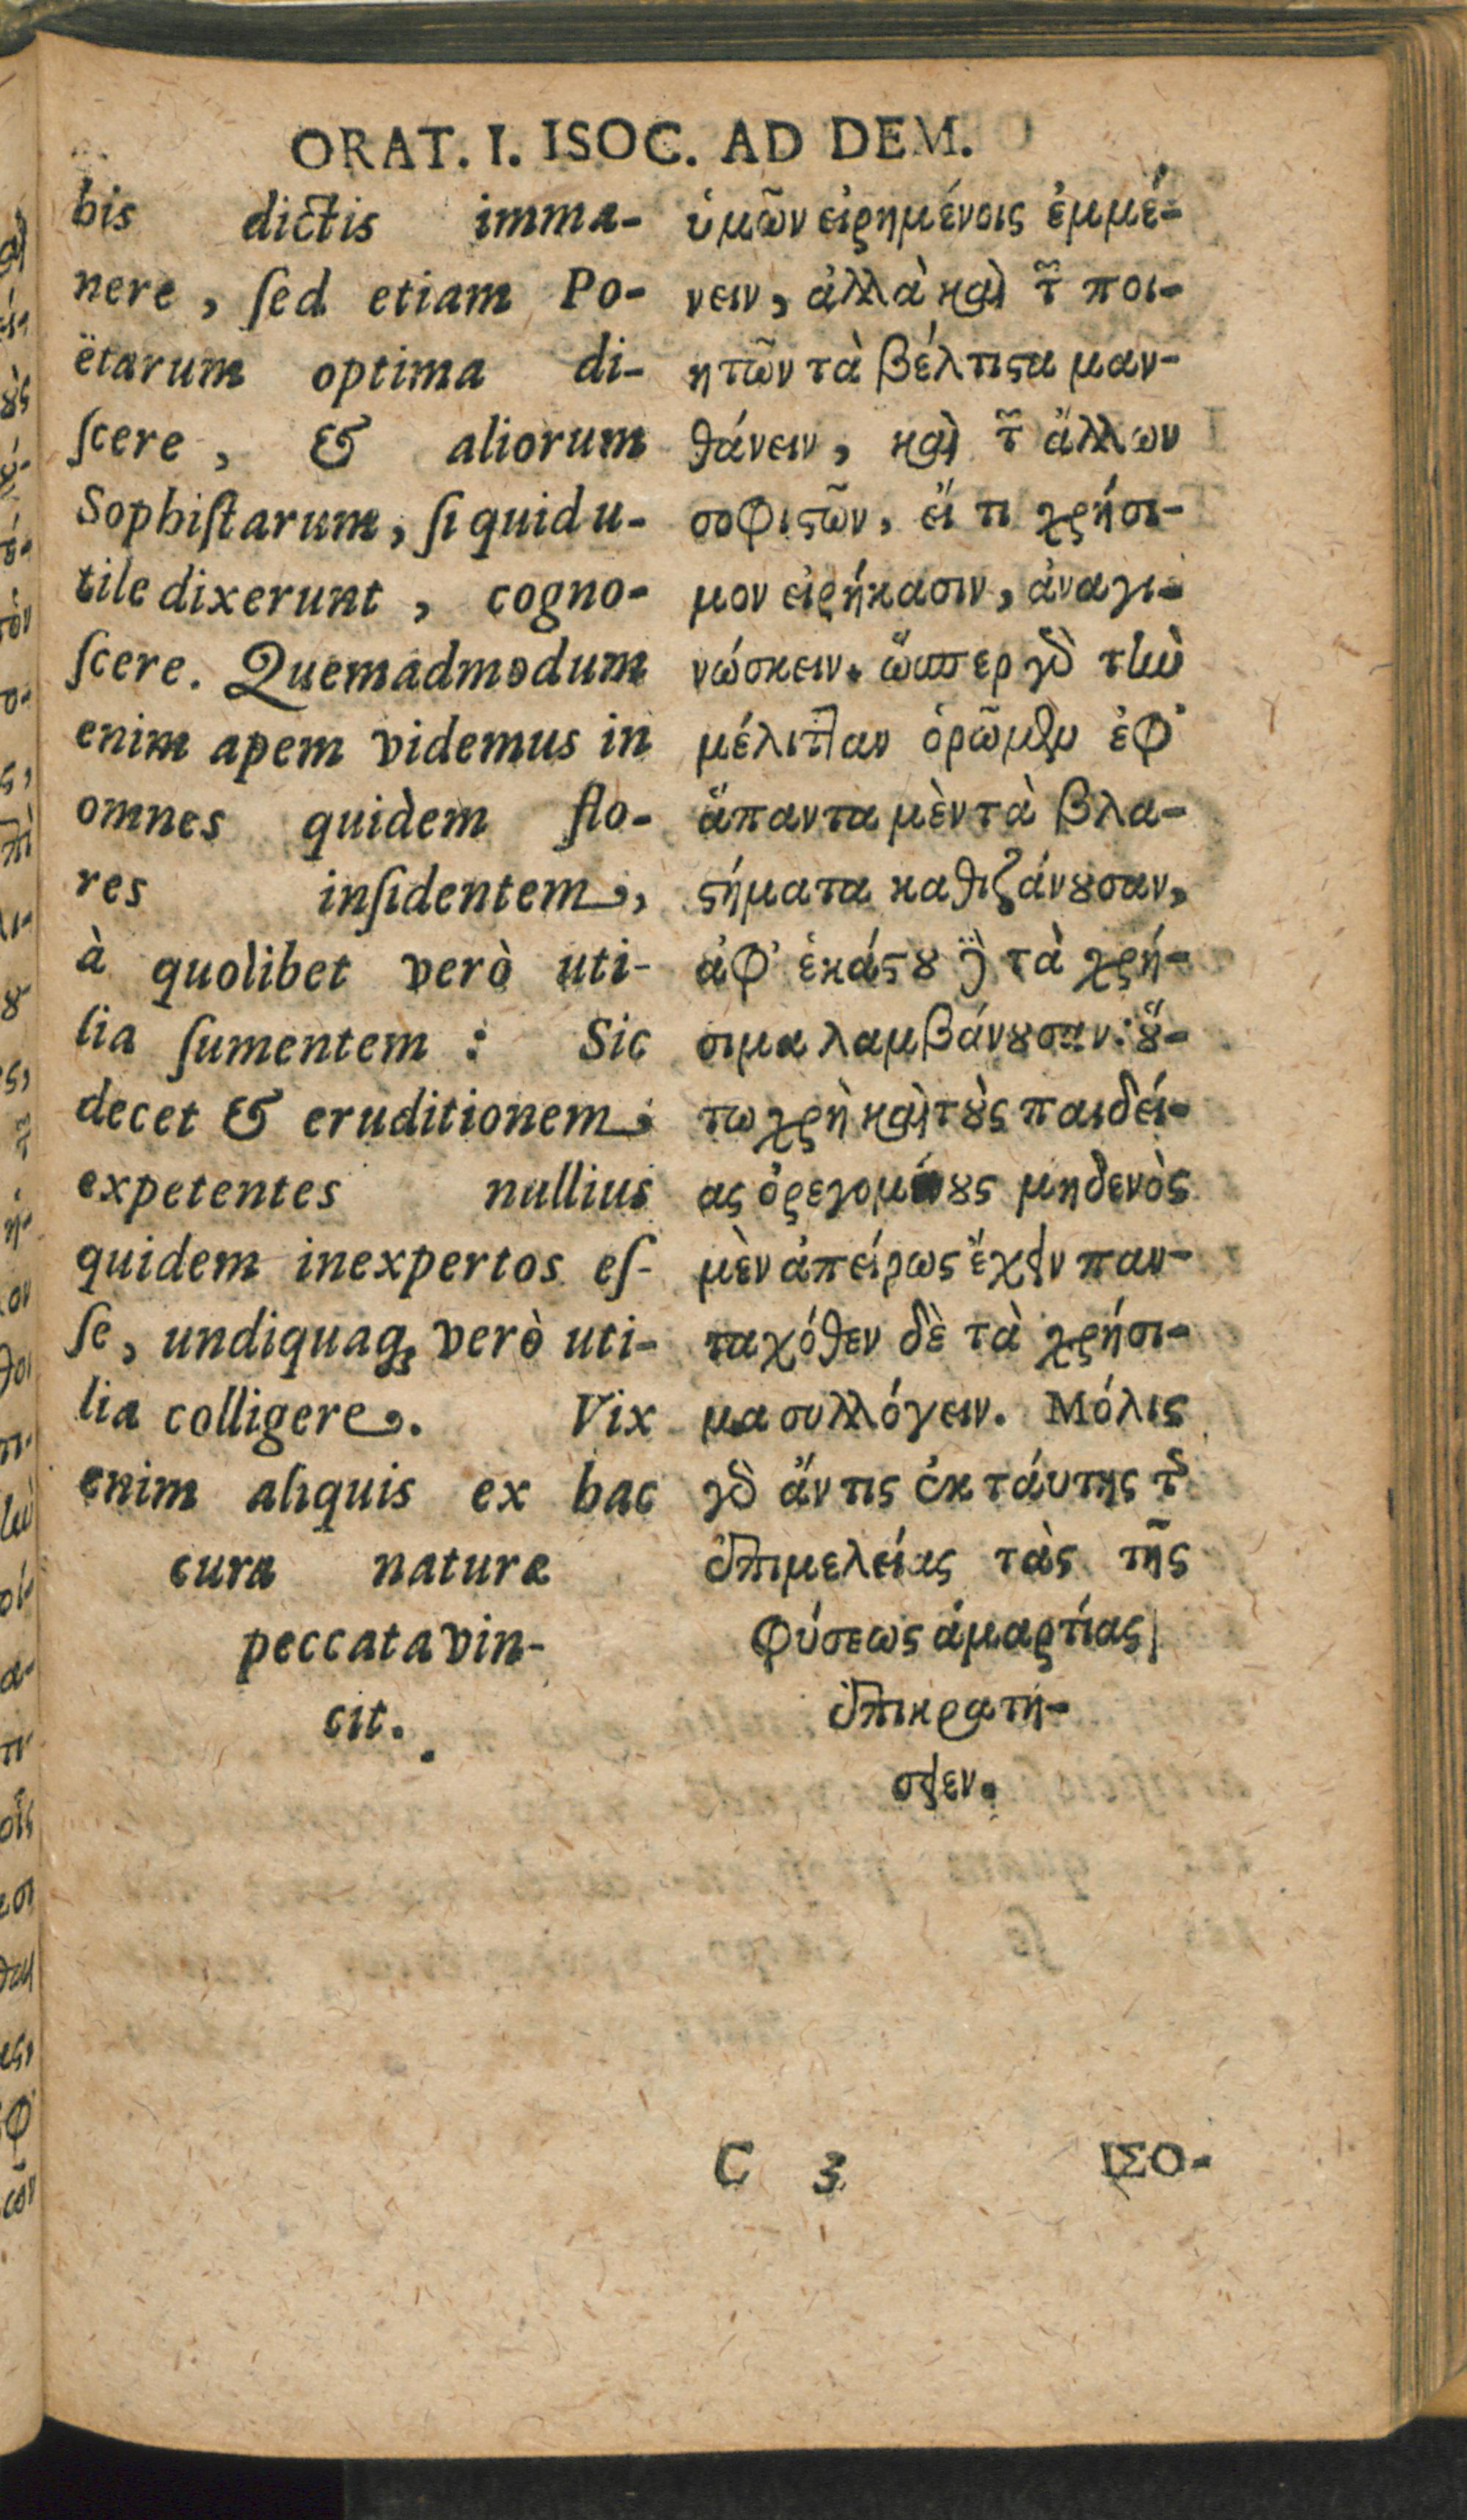 ORAT. I. ISOC. AD DEM.
bis dictis imma-
nere, ſed etiam Po-
ëtarum optima di-
ſcere, & aliorum
Sophiſtarum, ſi quid u-
tile dixerunt, cogno-
ſcere. Quemadmodum
enim apem videmus in
omnes quidem flo-
res inſidentem,
à quolibet verò uti-
lia ſumentem: Sic
decet & eruditionem
expetentes nullius
quidem inexpertos eſ-
ſe, undiquaq; verò uti-
lia colligere. Vix
enim aliquis ex hac
cura naturæ
peccata vin-
cit.
ὑμῶν εἰρημένοις ἐμμέ-
νειν, ἀλλὰ καὶ τ῀ ποι-
ητῶν τὰ βέλτιϛα μαν-
θάνειν, καὶ τ῀ ἄλλων
σοφιϛῶν, εἴ τι χρήσι-
μον εἰρήκασιν, ἀναγι-
νώσκειν. ὥσπερ γδ τὴν
μέλιτταν ὁρῶμεν ἐφ'
ἅπαντα μὲν τὰ βλα-
ϛήματα καθιζάνȣσαν,
ἀφ' ἑκάϛȣ ϳ τὰ χρή-
σιμα λαμβάνȣσαν· ȣ̔́-
τω χρὴ καὶ τȣ̀ς παιδεί-
ας ὀρεγομένȣς μηδενὸς
μὲν ἀπείρως ἔχειν παν-
ταχόθεν δὲ τὰ χρήσι-
μα συλλόγειν. Μόλις
γδ ἄν τις ἐκ τάυτης τ῀
ἐπιμελείας τὰς τῆς
φύσεως ἁμαρτίας
ἐπικρατή-
σειεν.
C 3 ΙΣΟ-